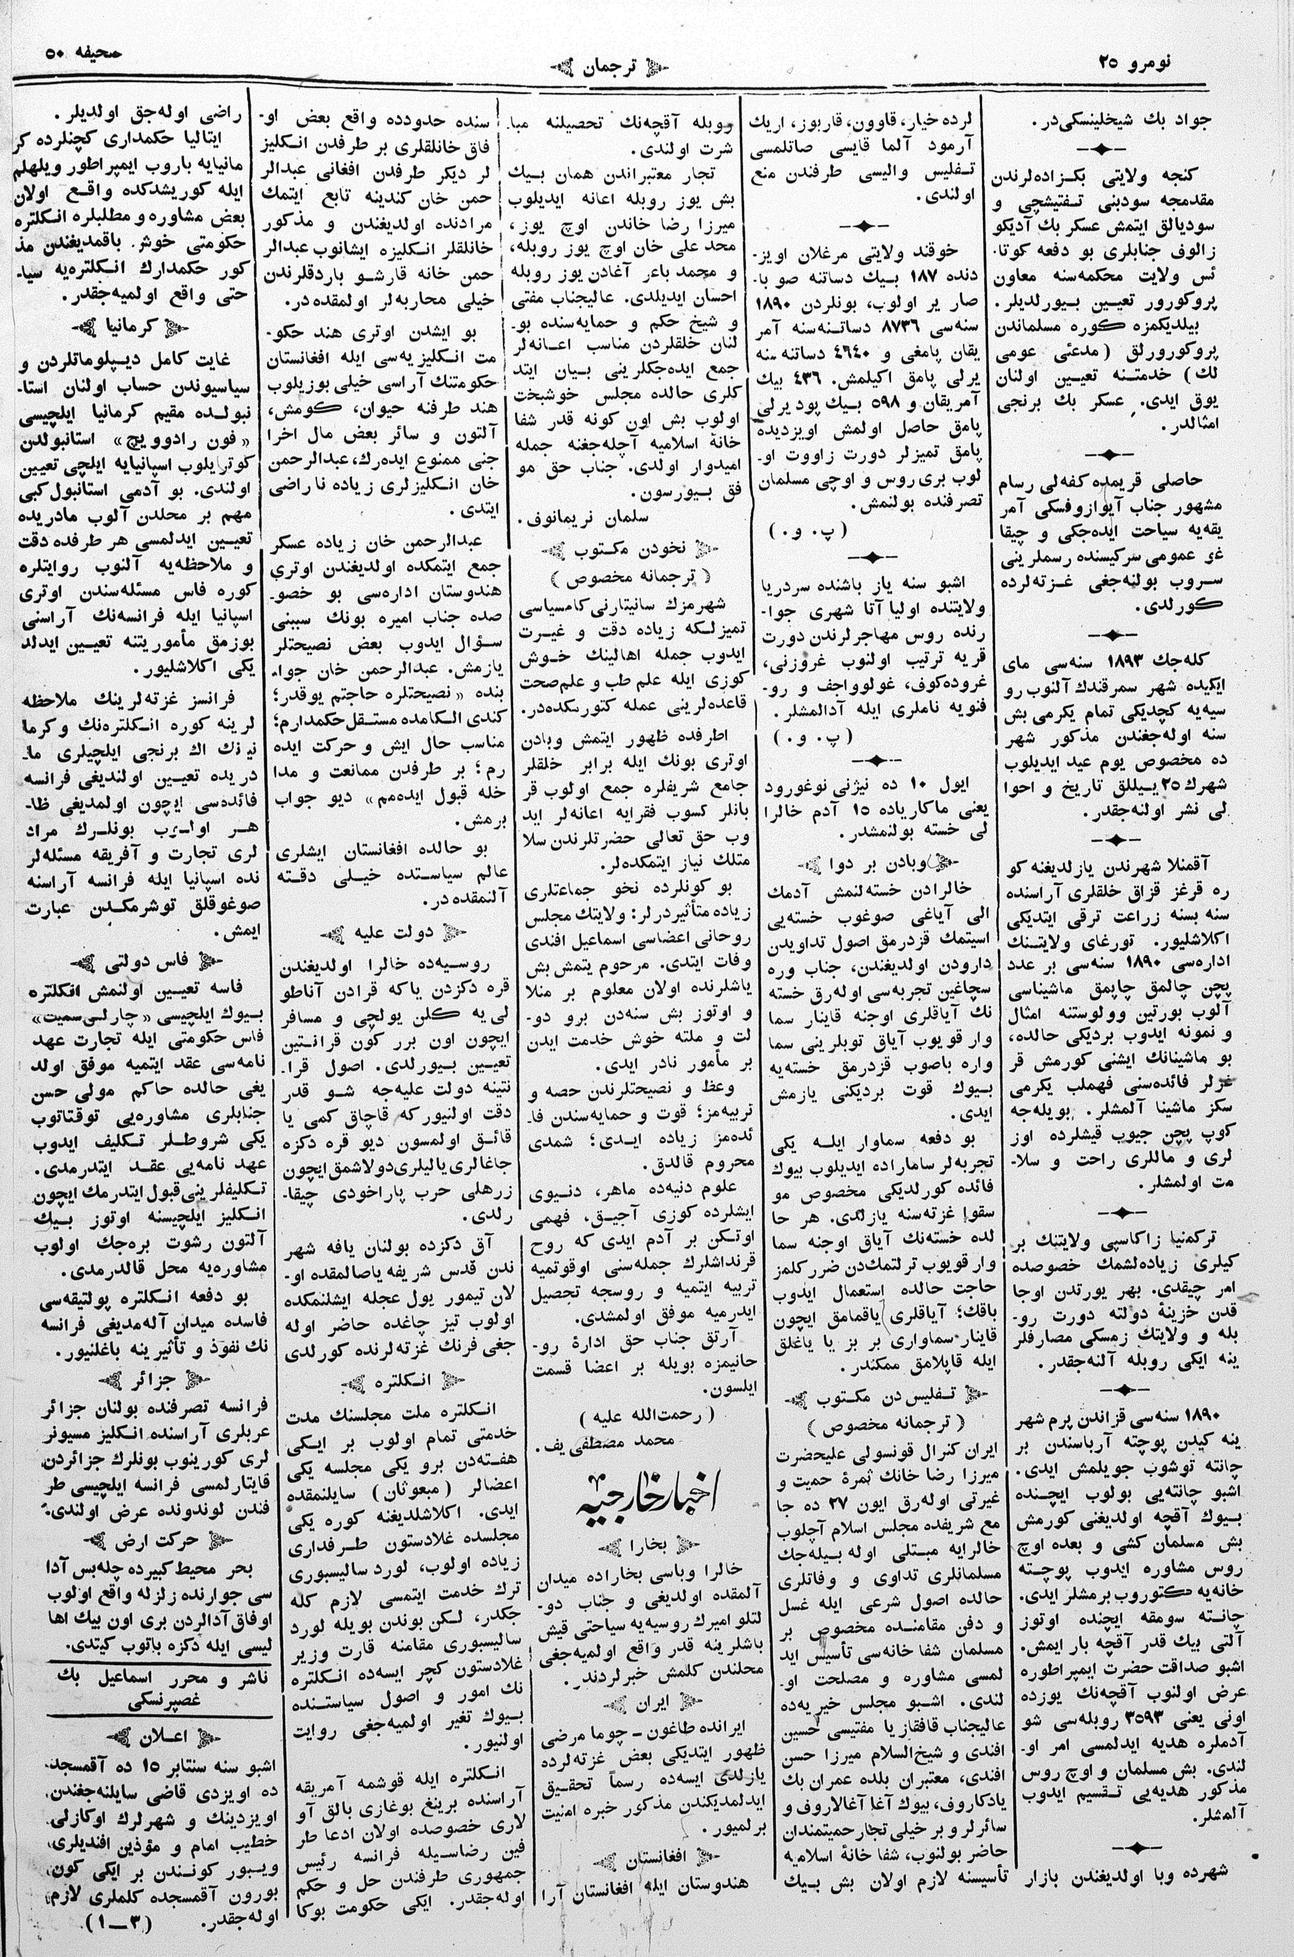 نومرو ٢٥
ترجمان
صحيفه ٥٠
جواد بك شيخلينسكى در.
كنجه ولايتى بكزاده لرندن
مقدمجه سودبنى تفتيشچى و
سوديالق ايتمش عسكر بك آديكو
زالوف جنابلرى بو دفعه كوتا-
ئس ولايت محكمه سنه معاون
پروكورور تعيين بيورلديلر.
بيلديكمزه كوره مسلماندن
پروكورورلق (مدعئى عمومى
لك) خدمتنه تعيين اولنان
يوق ايدى. عسكر بك برنجى
امثالدر.
حاصلى قريمده كفه لى رسام
مشهور جناب آيوازوفسكى آمر
يقه يه سياحت ايده جكى و چيقا
غو عمومى سركيسنده رسملرينى
سروب بولنه جغى غزته لرده
كورلدى.
كله جك ١٨٩٣ سنه سى ماى
ايكيده شهر سمرقندك آلنوب رو
سيه يه كچديكى تمام يكرمى بش
سنه اوله جغندن مذكور شهر
ده مخصوص يوم عيد ايديلوب
شهرك ٢٥ ييللق تاريخ و احوا
لى نشر اولنه جقدر.
آقمنلا شهرندن يازلديغنه كو
ره قرغز قزاق خلقلرى آراسنده
سنه بسنه زراعت ترقى ايتديكى
اكلاشليور. تورغاى ولايتنك
اداره سى ١٨٩٠ سنه سى بر عدد
پچن چالمق چاپمق ماشيناسى
آلوب بورتين وولوستنه امثال
و نمونه ايدوب برديكى حالده،
بو ماشينانك ايشنى كورمش قر
غزلر فائده سنى فهملب يكرمى
سكز ماشينا آلمشلر. بويله جه
كوپ پچن جيوب قيشلرده اوز
لرى و ماللرى راحت و سلا-
مت اولمشلر.
تركمنيا زاكاسپى ولايتنك بر
كيلرى زياده لشمك خصوصده
امر چيقدى. بهر يورتدن اوجا
قدن خزينۀ دولته دورت رو-
بله و ولايتك زمسكى مصارفلر
ينه ايكى روبله آلنه جقدر.
١٨٩٠ سنه سى قزاندن پرم شهر
ينه كيدن پوچته آرباسندن بر
چانته توشوب جويلمش ايدى.
اشبو چانته يى بولوب ايچنده
بيوك آقچه اولديغنى كورمش
بش مسلمان كشى و بعده اوچ
روس مشاوره ايدوب پوچته
خانه يه كتوروب برمشلر ايدى.
چانته سومقه ايچنده اوتوز
آلتى بيك قدر آقچه بار ايمش.
اشبو صداقت حضرت ايمپراطوره
عرض اولنوب آقچه نك يوزده
اونى يعنى ٣٥٩٣ روبله سى شو
آدملره هديه ايدلمسى امر او-
لندى. بش مسلمان و اوچ روس
مذكور هديه يى تقسيم ايدوب
آلمشلر.
شهرده وبا اولديغندن بازار
لرده خيار، قاوون، قاربوز، اريك
آرمود آلما قايسى صاتلمسى
تفليس واليسى طرفندن منع
اولندى.
خوقند ولايتى مرغلان اويز-
دنده ١٨٧ بيك دساتنه صو با-
صار ير اولوب، بونلردن ١٨٩٠
سنه سى ٨٧٣٦ دساتنه سنه آمر
يقان پامغى و ٤٦٤٠ دساتنه سنه
يرلى پامق اكيلمش. ٤٣٦ بيك
آمريقان و ٥٩٨ بيك پود يرلى
پامق حاصل اولمش اويزديده
پامق تميزلر دورت زاووت او-
لوب برى روس و اوچى مسلمان
تصرفنده بولنمش.
(پ. و.)
اشبو سنه ياز باشنده سردريا
ولايتنده اوليا آتا شهرى جوا-
رنده روس مهاجرلرندن دورت
قريه ترتيب اولنوب غروزنى،
غروده كوف، غولوواجف و رو-
فنويه ناملرى ايله آدالمشلر.
(پ. و.)
ايول ١٠ ده نيژنى نوغورود
يعنى ماكارياده ١٥ آدم خالرا
لى خسته بولنمشدر.
وبادن بر دوا
خالرادن خسته لنمش آدمك
الى آياغى صوغوب خسته يى
اسيتمك قزدرمق اصول تداويدن
دارودن اولديغندن، جناب وره
سچاغين تجربه سى اوله رق خسته
نك آياقلرى اوجنه قاينار سما
وار قويوب آياق توبلرينى سما
واره باصوب قزدرمق خسته يه
بيوك قوت برديكنى يازمش
ايدى.
بو دفعه سماوار ايله يكى
تجربه لر ساماراده ايديلوب بيوك
فائده كورلديكى مخصوص مو
سقوا غزته سنه يازلدى. هر حا
لده خسته نك آياق اوجنه سما
وار قويوب ترلتمك دن ضرر كلمز
حاجت حالده استعمال ايدوب
باقك؛ آياقلرى ياقمامق ايچون
قاينار سماوارى بر بز يا ياغلق
ايله قاپلامق ممكندر.
تفليس دن مكتوب
(ترجمانه مخصوص)
ايران كنرال قونسولى عليحضرت
ميرزا رضا خانك ثمرۀ حميت و
غيرتى اوله رق ايون ٢٧ ده جا
مع شريفده مجلس اسلام آچلوب
خالرايه مبتلى اوله بيله جك
مسلمانلرى تداوى و وفاتلرى
حالده اصول شرعى ايله غسل
و دفن مقامنده مخصوص بر
مسلمان شفا خانه سى تأسيس ايد
لمسى مشاوره و مصلحت او-
لندى. اشبو مجلس خيريه ده
عاليجناب قافقاز يا مفتيسى حسين
افندى و شيخ السلام ميرزا حسن
افندى، معتبران بلده عمران بك
يادكاروف، بيوك آغا آغالاروف و
سائرلر و بر خيلى تجار حميتمندان
حاضر بولنوب، شفا خانۀ اسلاميه
تأسيسنه لازم اولان بش بيك
روبله آقچه نك تحصيلنه مبا-
شرت اولندى.
تجار معتبراندن همان بيك
بش يوز روبله اعانه ايديلوب
ميرزا رضا خاندن اوچ يوز،
محمد على خان اوچ يوز روبله،
و محمد باقر آغادن يوز روبله
احسان ايديلدى. عاليجناب مفتى
و شيخ حكم و حمايه سنده بو-
لنان خلقلردن مناسب اعانه لر
جمع ايده جكلرينى بيان ايتد
كلرى حالده مجلس خوشبخت
اولوب بش اون كونه قدر شفا
خانۀ اسلاميه آچله جغنه جمله
اميدوار اولدى. جناب حق مو
فق بيورسون.
سلمان نريمانوف.
نخودن مكتوب
(ترجمانه مخصوص)
شهرمزك سانيتارنى كامسياسى
تميزلكه زياده دقت و غيرت
ايدوب جمله اهالينك خوش
كوزى ايله علم طب و علم صحت
قاعده لرينى عمله كتورمكده در.
اطرفده ظهور ايتمش وبادن
اوترى بونك ايله برابر خلقلر
جامع شريفلره جمع اولوب قر
بانلر كسوب فقرايه اعانه لر ايد
وب حق تعالى حضرتلرندن سلا
متلك نياز ايتمكده لر.
بو كونلرده نخو جماعتلرى
زياده متأثيردرلر: ولايتك مجلس
روحانى اعضاسى اسماعيل افندى
وفات ايتدى. مرحوم يتمش بش
ياشلرنده اولان معلوم بر منلا
و اوتوز بش سنه دن برو دو-
لت و ملته خوش خدمت ايدن
بر مأمور نادر ايدى.
وعظ و نصيحتلرندن حصه و
تربيه مز؛ قوت و حمايه سندن فا-
ئده مز زياده ايدى؛ شمدى
محروم قالدق.
علوم دنيه ده ماهر، دنيوى
ايشلرده كوزى آجيق، فهمى
اوتكن بر آدم ايدى كه روح
قرنداشلرك جمله سنى اوقوتميه
تربيه ايتميه و روسجه تحصيل
ايدرميه موفق اولمشدى.
آرتق جناب حق ادارۀ رو-
حانيمزه بويله بر اعضا قسمت
ايلسون.
(رحمت الله عليه)
محمد مصطفى يف.
اخبار خارجيه
بخارا
خالرا وباسى بخاراده ميدان
آلمقده اولديغى و جناب دو-
لتلو اميرك روسيه يه سياحتى قيش
باشلرينه قدر واقع اولميه جغى
محلندن كلمش خبرلردند.
ايران
ايرانده طاغون ـ چوما مرضى
ظهور ايتديكى بعض غزته لرده
يازلدى ايسه ده رسماً تحقيق
ايدلمديكندن مذكور خبره امنيت
برلميور.
افغانستان
هندوستان ايله افغانستان آرا
سنده حدودده واقع بعض او-
فاق خانلقلرى بر طرفدن انكليز
لر ديكر طرفدن افغانى عبدالر
حمن خان كندينه تابع ايتمك
مرادنده اولديغندن و مذكور
خانلقلر انكليزه ايشانوب عبدالر
حمن خانه قارشو باردقلرندن
خيلى محاربه لر اولمقده در.
بو ايشدن اوترى هند حكو-
مت انكليزيه سى ايله افغانستان
حكومتنك آراسى خيلى بوزيلوب
هند طرفنه حيوان، كومش،
آلتون و سائر بعض مال اخرا
جنى ممنوع ايده رك، عبدالرحمن
خان انكليزلرى زياده ناراضى
ايتدى.
عبدالرحمن خان زياده عسكر
جمع ايتمكده اولديغندن اوترى
هندوستان اداره سى بو خصو-
صده جناب اميره بونك سببنى
سؤال ايدوب بعض نصيحتلر
يازمش. عبدالرحمن خان جوا-
بنده «نصيحتلره حاجتم يوقدر؛
كندى الكامده مستقل حكمدارم؛
مناسب حال ايش و حركت ايده
رم؛ بر طرفدن ممانعت و مدا
خله قبول ايده مم» ديو جواب
برمش.
بو حالده افغانستان ايشلرى
عالم سياستده خيلى دقته
آلنمقده در.
دولت عليه
روسيه ده خالرا اولديغندن
قره دكزدن ياكه قرادن آناطو
لى يه كلن يولچى و مسافر
ايچون اون برر كون قرانتين
تعيين بيورلدى. اصول قرا-
نتينه دولت عليه جه شو قدر
دقت اولنيور كه قاچاق كمى يا
قائق اولمسون ديو قره دكزه
جاغالرى ياليلرى دولاشمق ايچون
زرهلى حرب پاراخودى چيقا-
رلدى.
آق دكزده بولنان يافه شهر
ندن قدس شريفه ياصالمقده او-
لان تيمور يول عجله ايشلنمكده
اولوب تيز چاغده حاضر اوله
جغى فرنك غزته لرنده كورلدى
انكلتره
انكلتره ملت مجلسنك مدت
خدمتى تمام اولوب بر ايكى
هفته دن برو يكى مجلسه يكى
اعضالر (مبعوثان) سايلنمقده
ايدى. اكلاشلديغنه كوره يكى
مجلسده غلادستون طرفدارى
زياده اولوب، لورد ساليسبورى
ترك خدمت ايتمسى لازم كله
جكدر، لكن بوندن بويله لورد
ساليسبورى مقامنه قارت وزير
غلادستون كچر ايسه ده انكلتره
نك امور و اصول سياستنده
بيوك تغير اولميه جغى روايت
اولنيور.
انكلتره ايله قوشمه آمريقه
آراسنده برينغ بوغازى بالق آو
لارى خصوصده اولان ادعا طر
فين رضاسيله فرانسه رئيس
جمهورى طرفندن حل و حكم
اوله جقدر. ايكى حكومت بوكا
راضى اوله جق اولديلر.
ايتاليا حكمدارى كچنلرده كر
مانيايه باروب ايمپراطور ويلهلم
ايله كوريشدكده واقع اولان
بعض مشاوره و مطلبلره انكلتره
حكومتى خوش باقمديغندن مذ
كور حكمدارك انكلتره يه سيا-
حتى واقع اولميه جقدر.
كرمانيا
غايت كامل ديپلوماتلردن و
سياسيوندن حساب اولنان استا-
نبولده مقيم كرمانيا ايلچيسى
«فون رادوويچ» استانبولدن
كوتريلوب اسپانيايه ايلچى تعيين
اولندى. بو آدمى استانبول كبى
مهم بر محلدن آلوب مادريده
تعيين ايدلمسى هر طرفده دقت
و ملاحظه يه آلنوب روايتلره
كوره فاس مسئله سندن اوترى
اسپانيا ايله فرانسه نك آراسنى
بوزمق مأموريتنه تعيين ايدلد
يكى اكلاشليور.
فرانسز غزته لرينك ملاحظه
لرينه كوره انكلتره نك و كرما
نيانك اك برنجى ايلچيلرى ما-
دريده تعيين اولنديغى فرانسه
فائده سى ايچون اولمديغى ظا-
هر اولوب بونلرك مراد
لرى تجارت و آفريقه مسئله لر
نده اسپانيا ايله فرانسه آراسنه
صوغوقلق توشرمكدن عبارت
ايمش.
فاس دولتى
فاسه تعيين اولنمش انكلتره
بيوك ايلچيسى «چارلس سميت»
فاس حكومتى ايله تجارت عهد
نامه سى عقد ايتميه موفق اولد
يغى حالده حاكم مولى حسن
جنابلرى مشاوره يى توقتاتوب
يكى شروطلر تكليف ايدوب
عهد نامه يى عقد ايتدرمدى.
تكليفلرينى قبول ايتدرمك ايچون
انكليز ايلچيسنه اوتوز بيك
آلتون رشوت بره جك اولوب
مشاوره يه محل قالدرمدى.
بو دفعه انكلتره پولتيقه سى
فاسده ميدان آله مديغى فرانسه
نك نفوذ و تأثيرينه باغلنيور.
جزائر
فرانسه تصرفنده بولنان جزائر
عربلرى آراسنده انكليز مسيونر
لرى كورينوب بونلرك جزائردن
قايتارلمسى فرانسه ايلچيسى طر
فندن لوندونده عرض اولندى.
حركت ارض
بحر محيط كبيرده چله بس آدا
سى جوارنده زلزله واقع اولوب
اوفاق آدالردن برى اون بيك اها
ليسى ايله دكزه باتوب كيتدى.
ناشر و محرر اسماعيل بك
غصپرنسكى
اعلان
اشبو سنه سنتابر ١٥ ده آقمسجد
ده اويزدى قاضى سايلنه جغندن،
اويزدينك و شهرلرك اوكازلى
خطيب امام و مؤذين افنديلرى،
ويبور كونندن بر ايكى كون
بورون آقمسجده كلملرى لازم
اوله جقدر. (٣—١)